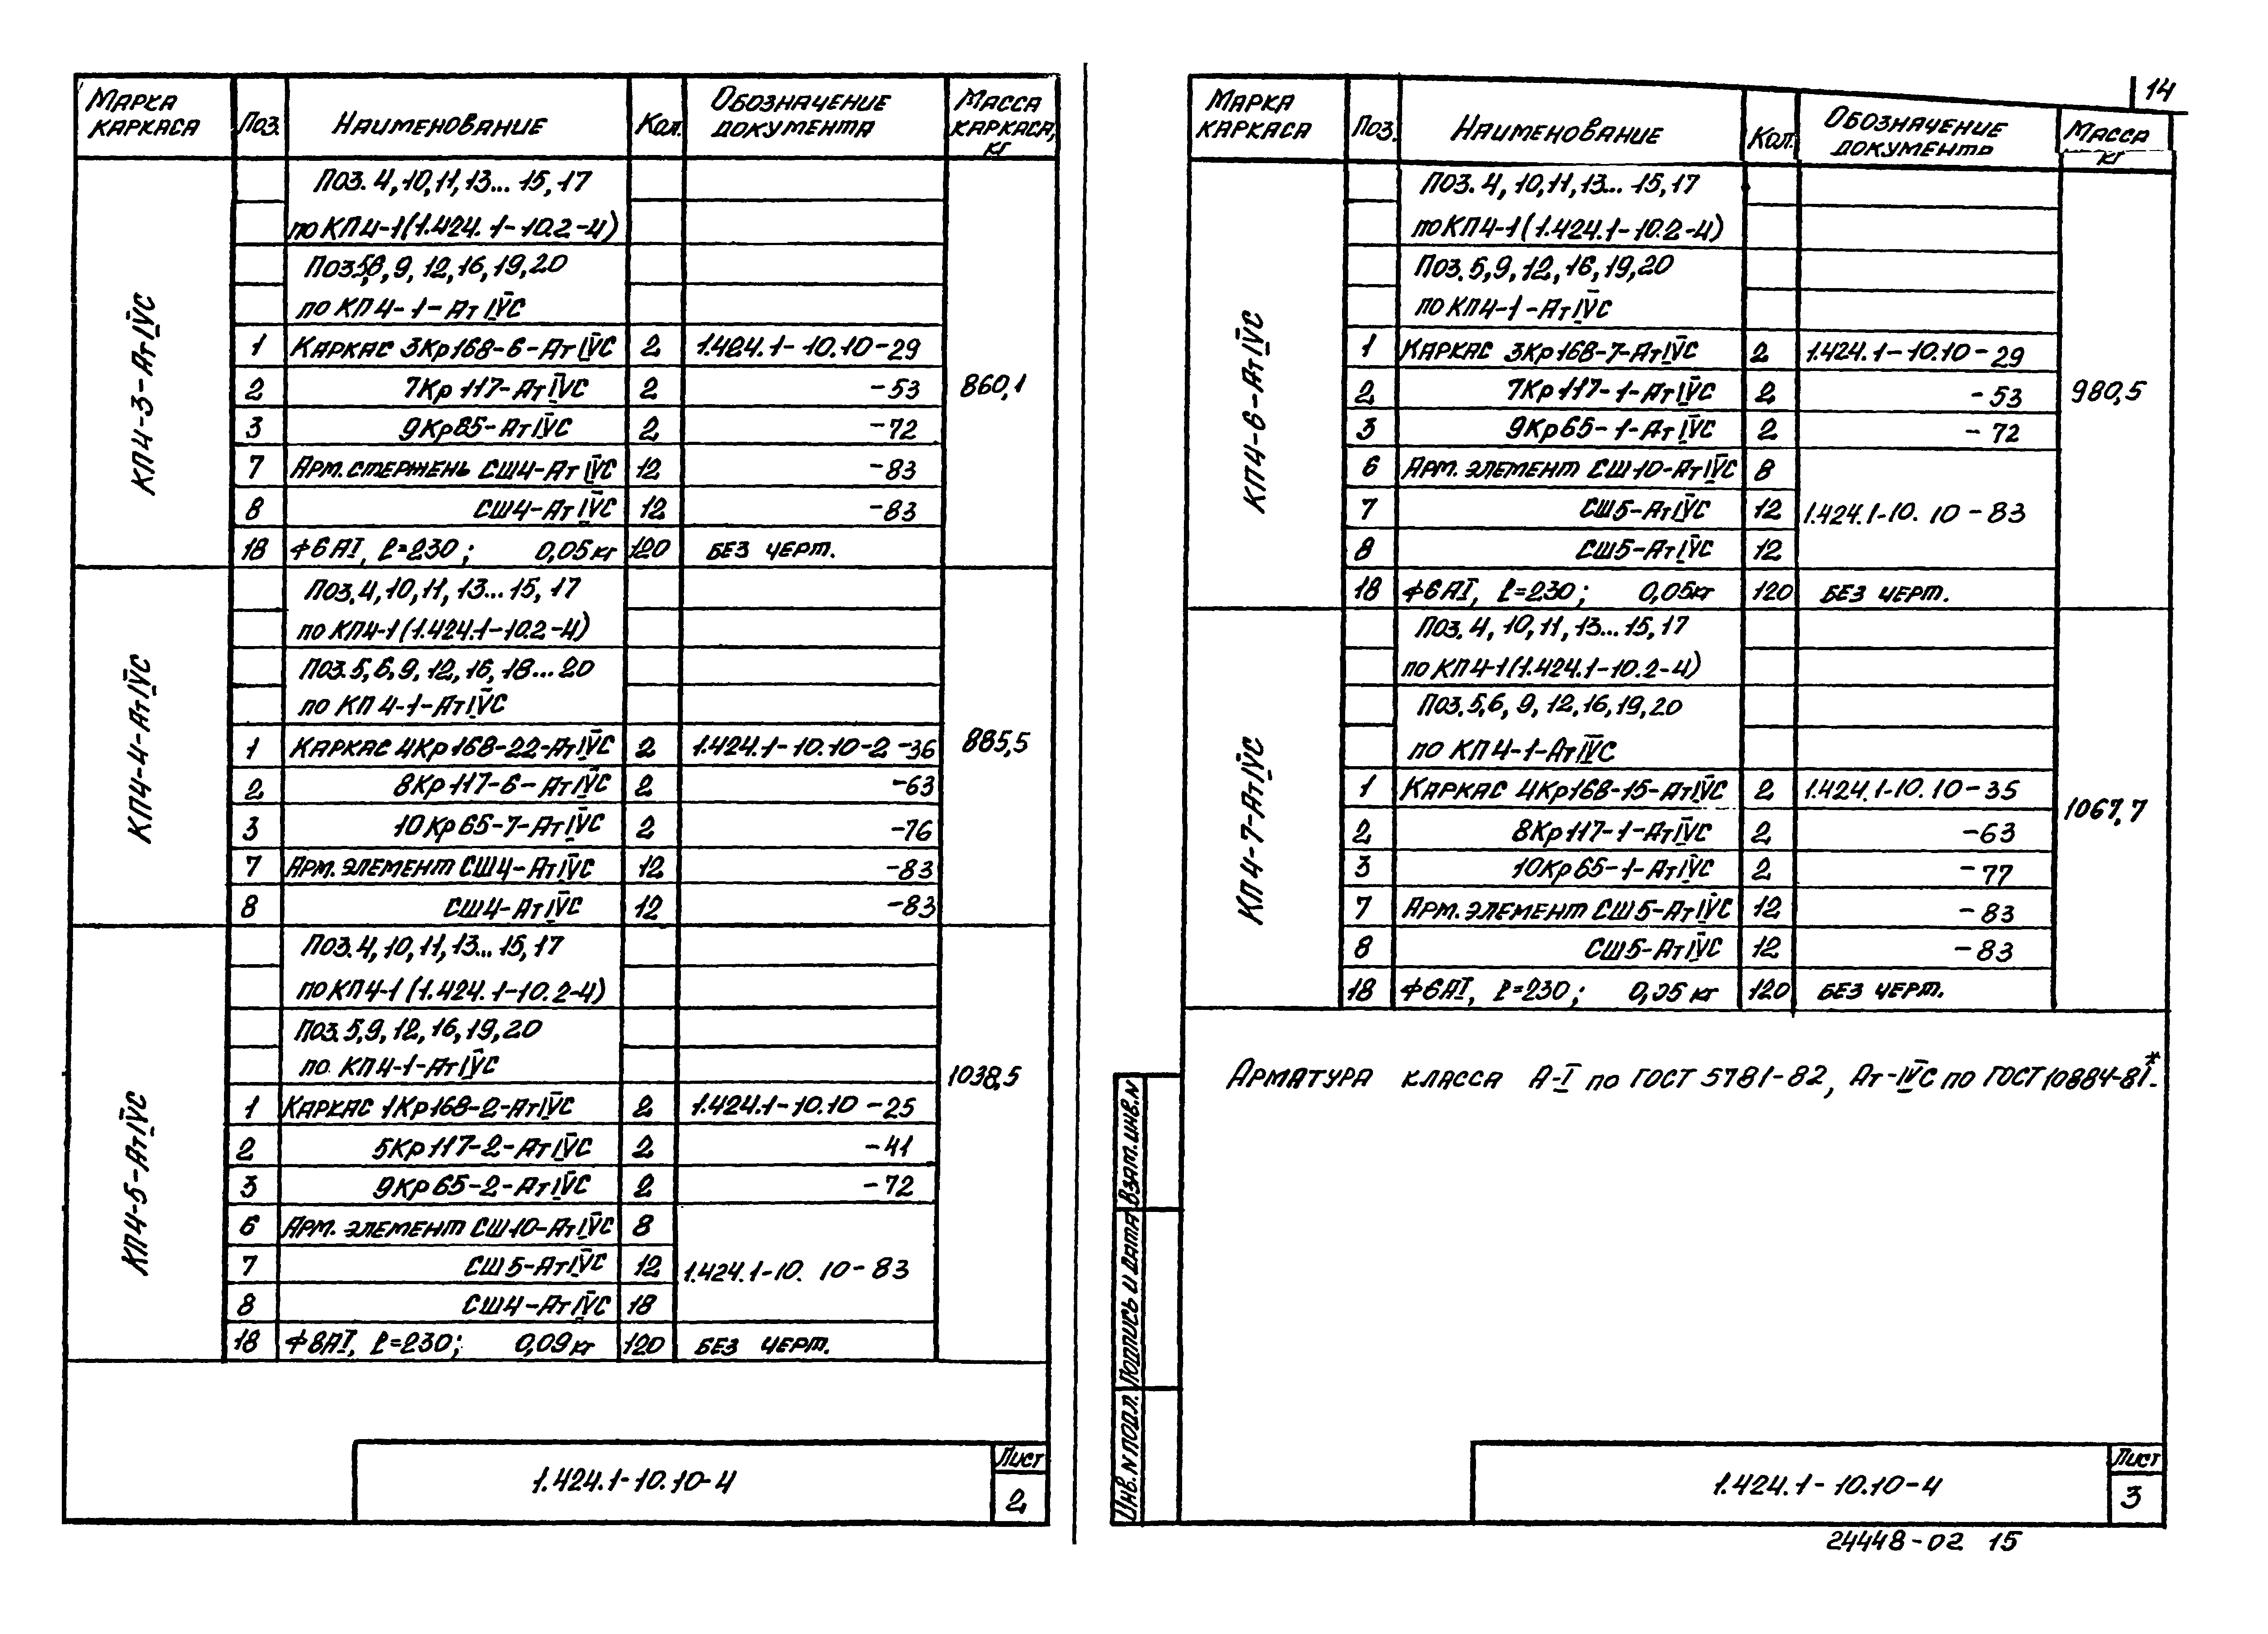 Марка каркаса Поз. Наименование Кол. Обозначение документа Масса каркаса, кг
КП4-3-АтIVС
Поз. 4, 10, 11, 13... 15, 17
по КП4-1 (1.424.1-10.2-4)
Поз. 5,6, 9, 12, 16, 19, 20
по КП4-1-АтIVС
1 Каркас 3Кр168-6-АтIVС 2 1.424.1-10.10-29
2 7Кр117-АтIVС 2 -53
860,1
3 9Кр85-АтIVС 2 -72
7 Арм. стержень СШ4-АтIVС 12 -83
8 СШ4-АтIVС 12 -83
18 Ф6АI, ℓ=230; 0,05кг 120 без черт.
КП4-4-АтIVС
Поз. 4, 10, 11, 13... 15, 17
по КП4-1 (1.424.1-10.2-4)
Поз. 5, 6, 9, 12, 16, 18... 20
по КП4-1-АтIVС
1 Каркас 4Кр168-22-АтIVС 2 1.424.1-10.10-2 -36 885,5
2 8Кр117-6-АтIVС 2 -63
3 10Кр65-7-АтIVС 2 -76
7 Арм. элемент СШ4-АтIVС 12 -83
8 СШ4-АтIVС 12 -83
КП4-5-АтIVС
Поз. 4, 10, 11, 13... 15, 17
по КП4-1 (1.424.1-10.2-4)
Поз. 5, 9, 12, 16, 19, 20
по КП4-1-АтIVС
1038,5
1 Каркас 1Кр168-2-АтIVС 2 1.424.1-10.10-25
2 5Кр117-2-АтIVС 2 -41
3 9Кр65-2-АтIVС 2 -72
6 Арм. элемент СШ10-АтIVС 8
7 СШ5-АтIVС 12 1.424.1-10.10-83
8 СШ4-АтIVС 18
18 Ф8АI, ℓ=230; 0,09кг 120 без черт.
1.424.1-10.10-4
Лист
2
14
Марка каркаса Поз. Наименование Кол. Обозначение документа Масса кг
КП4-6-АтIVС
Поз. 4, 10, 11, 13... 15, 17
по КП4-1 (1.424.1-10.2-4)
Поз. 5, 9, 12, 16, 19, 20
по КП4-1-АтIVС
1 Каркас 3Кр168-7-АтIVС 2 1.424.1-10.10-29
2 7Кр117-1-АтIVС 2 -53 980,5
3 9Кр65-1-АтIVС 2 -72
6 Арм. элемент СШ10-АтIVС 8
7 СШ5-АтIVС 12 1.424.1-10.10-83
8 СШ5-АтIVС 12
18 Ф6АI, ℓ=230; 0,05кг 120 без черт.
КП4-7-АтIVС
Поз. 4, 10, 11, 13... 15, 17
по КП4-1 (1.424.1-10.2-4)
Поз. 5, 6, 9, 12, 16, 19, 20
по КП4-1-АтIVС
1 Каркас 4Кр168-15-АтIVС 2 1.424.1-10.10-35
1067,7
2 8Кр117-1-АтIVС 2 -63
3 10Кр65-1-АтIVС 2 -77
7 Арм. элемент СШ5-АтIVС 12 -83
8 СШ5-АтIVС 12 -83
18 Ф6АI, ℓ=230; 0,05кг 120 без черт.
Арматура класса А-I по ГОСТ 5781-82, Ат-IVС по ГОСТ 10884-81*.
Взам. инв. N
Подпись и дата
Инв. N подл.
1.424.1-10.10-4
Лист
3
24448-02 15